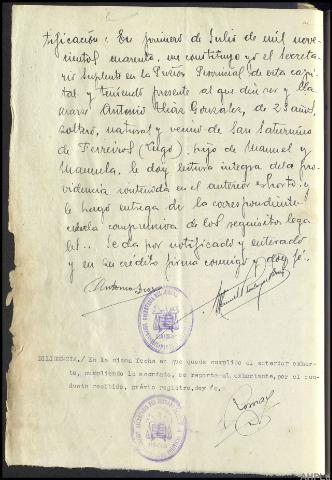 tificación: En primero de Julio de mil nove-
cientos cuarenta, me constituyo yo el Secreta-
rio Suplente en la Prisión Provincial de esta capi-
tal y teniendo presente al que dice ser y lla-
marse Antonio González, de 23 años,
soltero, natural y vecino de San Saturnino
de Ferreiros (Lugo) hijo de Manuel y
Manuela, le doy lectura integra de la pro-
videncia contenida en el anterior exhorto, y
le hago entrega de la correspondiente
cédula comprensiva de los requisitos lega-
les. Se da por notificado y enterado
y en su crédito firma conmigo y doy fé.
Antonio
DILIGENCIA./ En la misma fecha en que queda cumplido el anterior exhor-
to, cumpliendo lo acordado, se reporta al exhortante, por el con-
ducto recibido, prévio registro, doy fe.
Romay